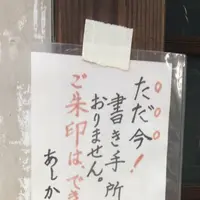 ただ今!
書き手所
おりません。
ご朱印はでき
あしか